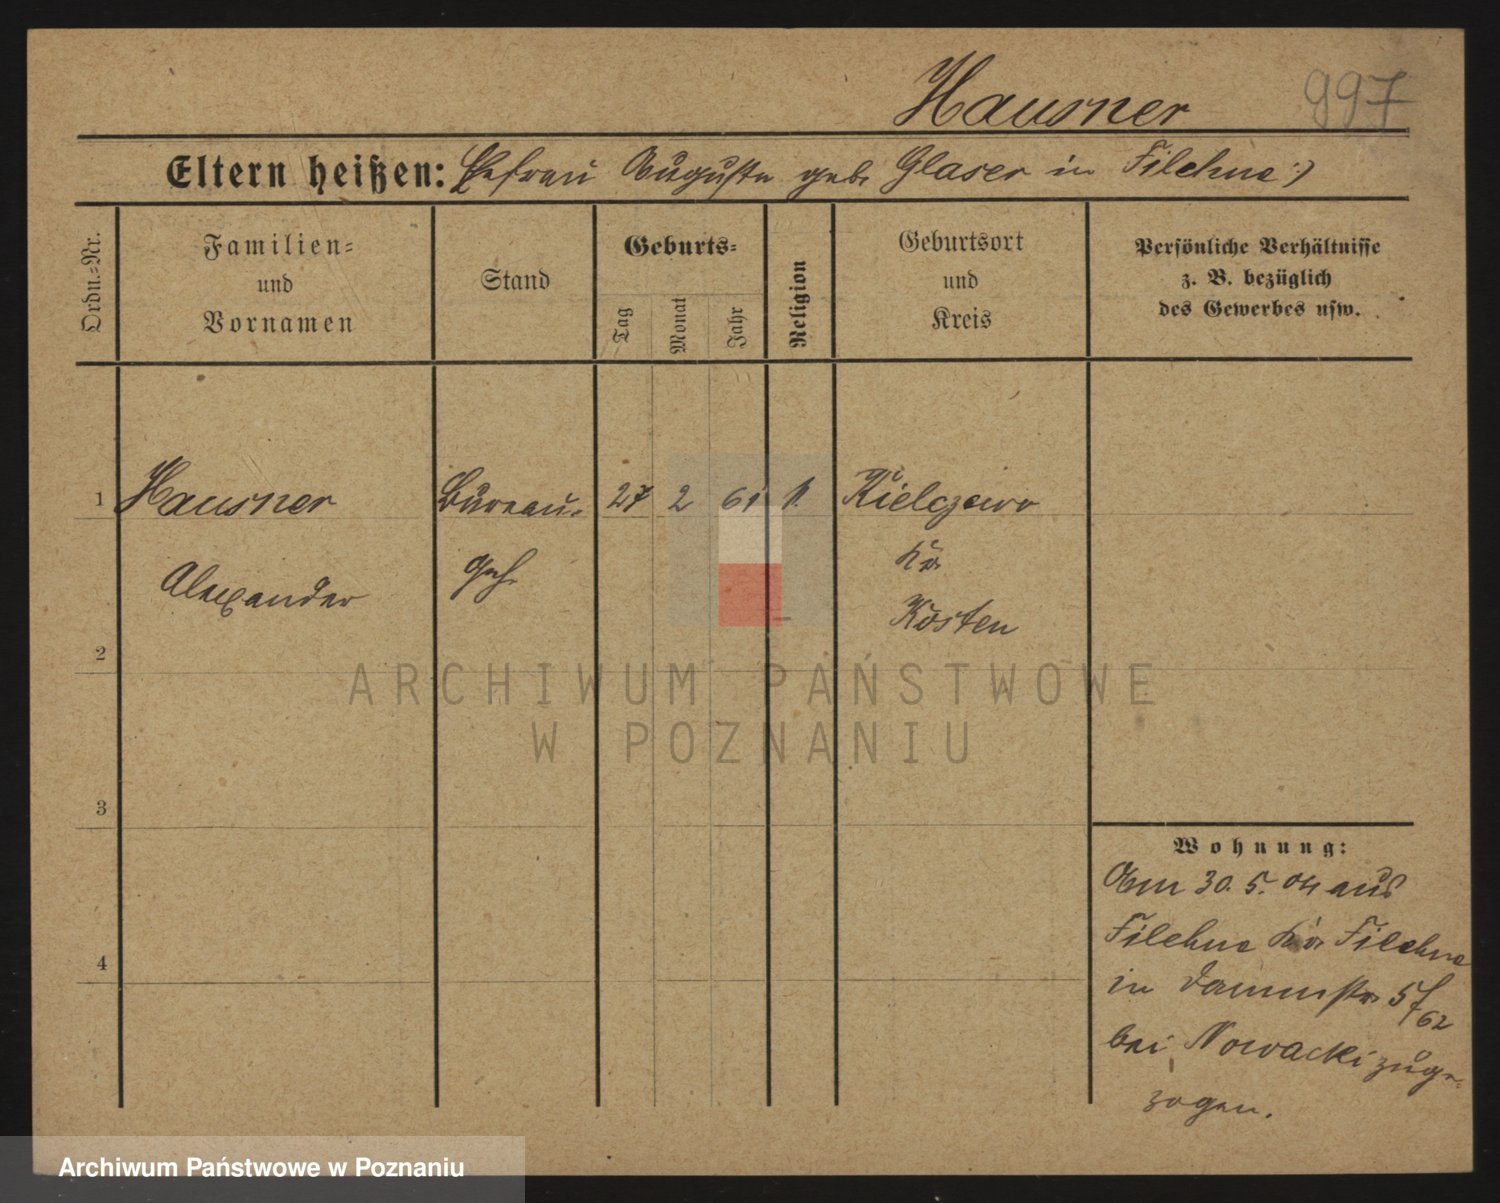 Hausner 997
Eltern heißen: Ehefrau Auguste geb. Glaser in Filehne :)
Ordn.=Nr.
Familien=
und
Vornamen
Stand
Geburts=
Tag
Monat
Jahr
Religion
Geburtsort
und
Kreis
Persönliche Verhältnisse
z. B. bezüglich
des Gewerbes usw.
1 Hausner Bureau- 27 2 61 k. Kielczewo
Alexander Geh. Kr.
Kosten
2
3
4
ARCHIWUM PAŃSTWOWE
W POZNANIU
Wohnung:
Am 30. 5. 04 aus
Filehne Kr. Filehne
in Dammstr.
bei Nowacki zuge-
zogen.
Archiwum Państwowe w Poznaniu